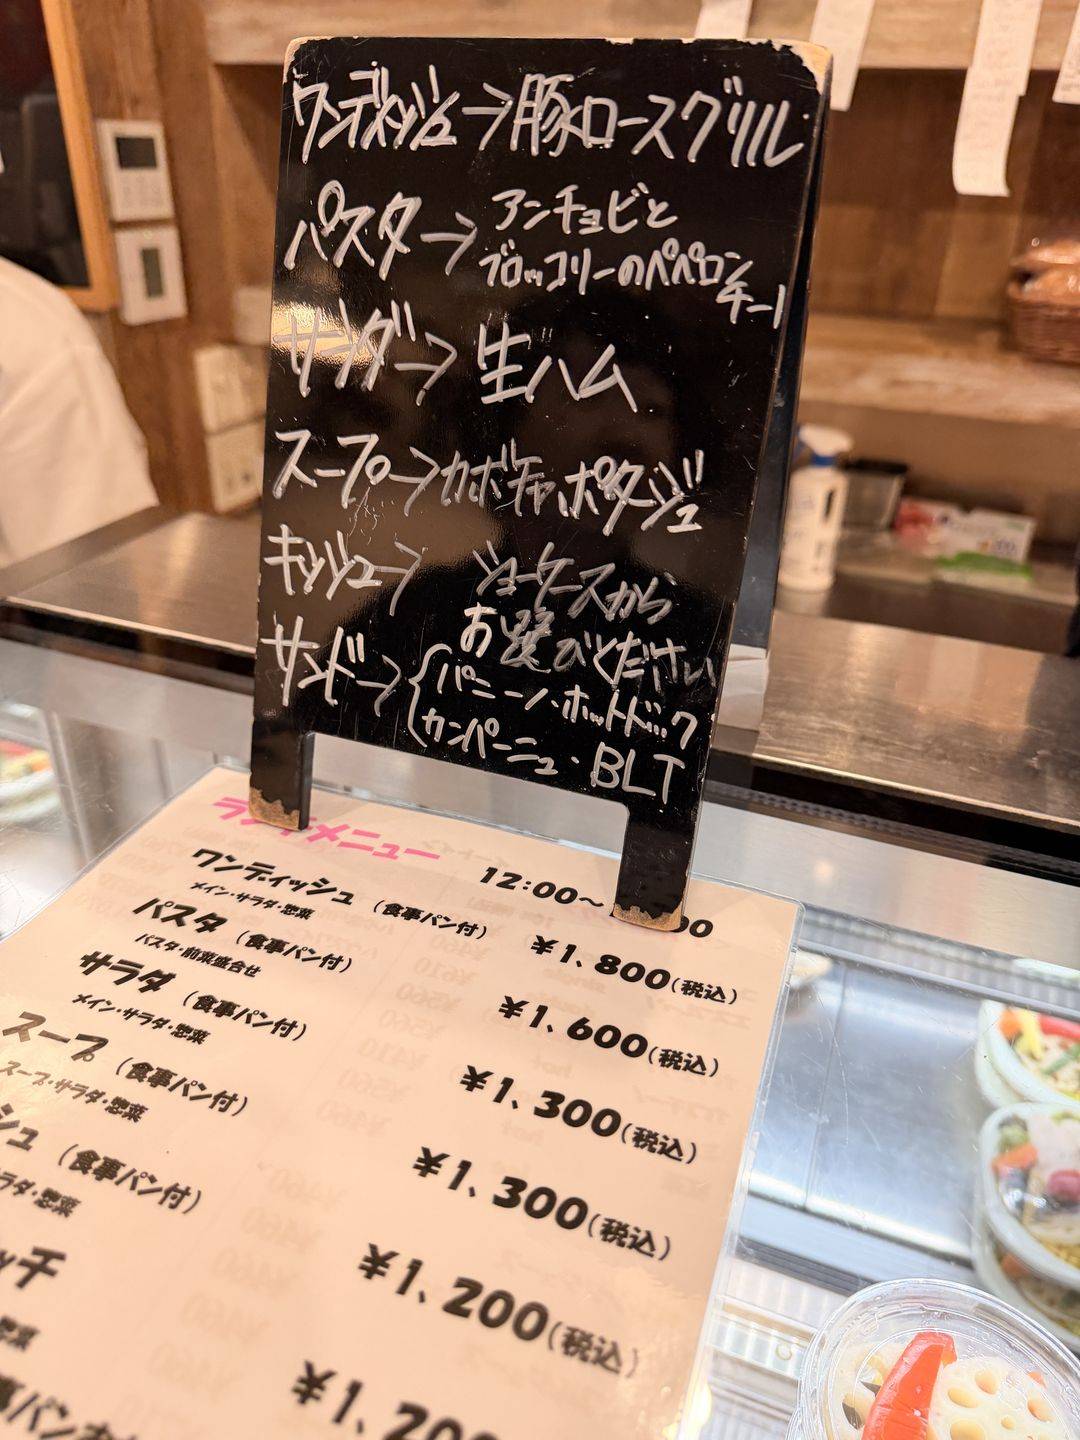 ワンディッシュ→豚ロースグリル
パスタ→アンチョビと
ブロッコリーのペペロン
チーノ
サラダ→生ハム
スープ→カボチャポタージュ
キッシュ→ショーケースから
お選びください
サンド→パニーニ・ホットドック
カンパーニュ・BLT
ランチメニュー
12:00～
00
ワンディッシュ（食事パン付） ¥1,800(税込)
メイン・サラダ・惣菜
パスタ（食事パン付） ¥1,600(税込)
パスタ・前菜盛合せ
サラダ（食事パン付） ¥1,300(税込)
メイン・サラダ・惣菜
スープ（食事パン付） ¥1,300(税込)
スープ・サラダ・惣菜
シュ（食事パン付） ¥1,200(税込)
ラダ・惣菜
ッチ ¥1,200
惣菜
食事パン付